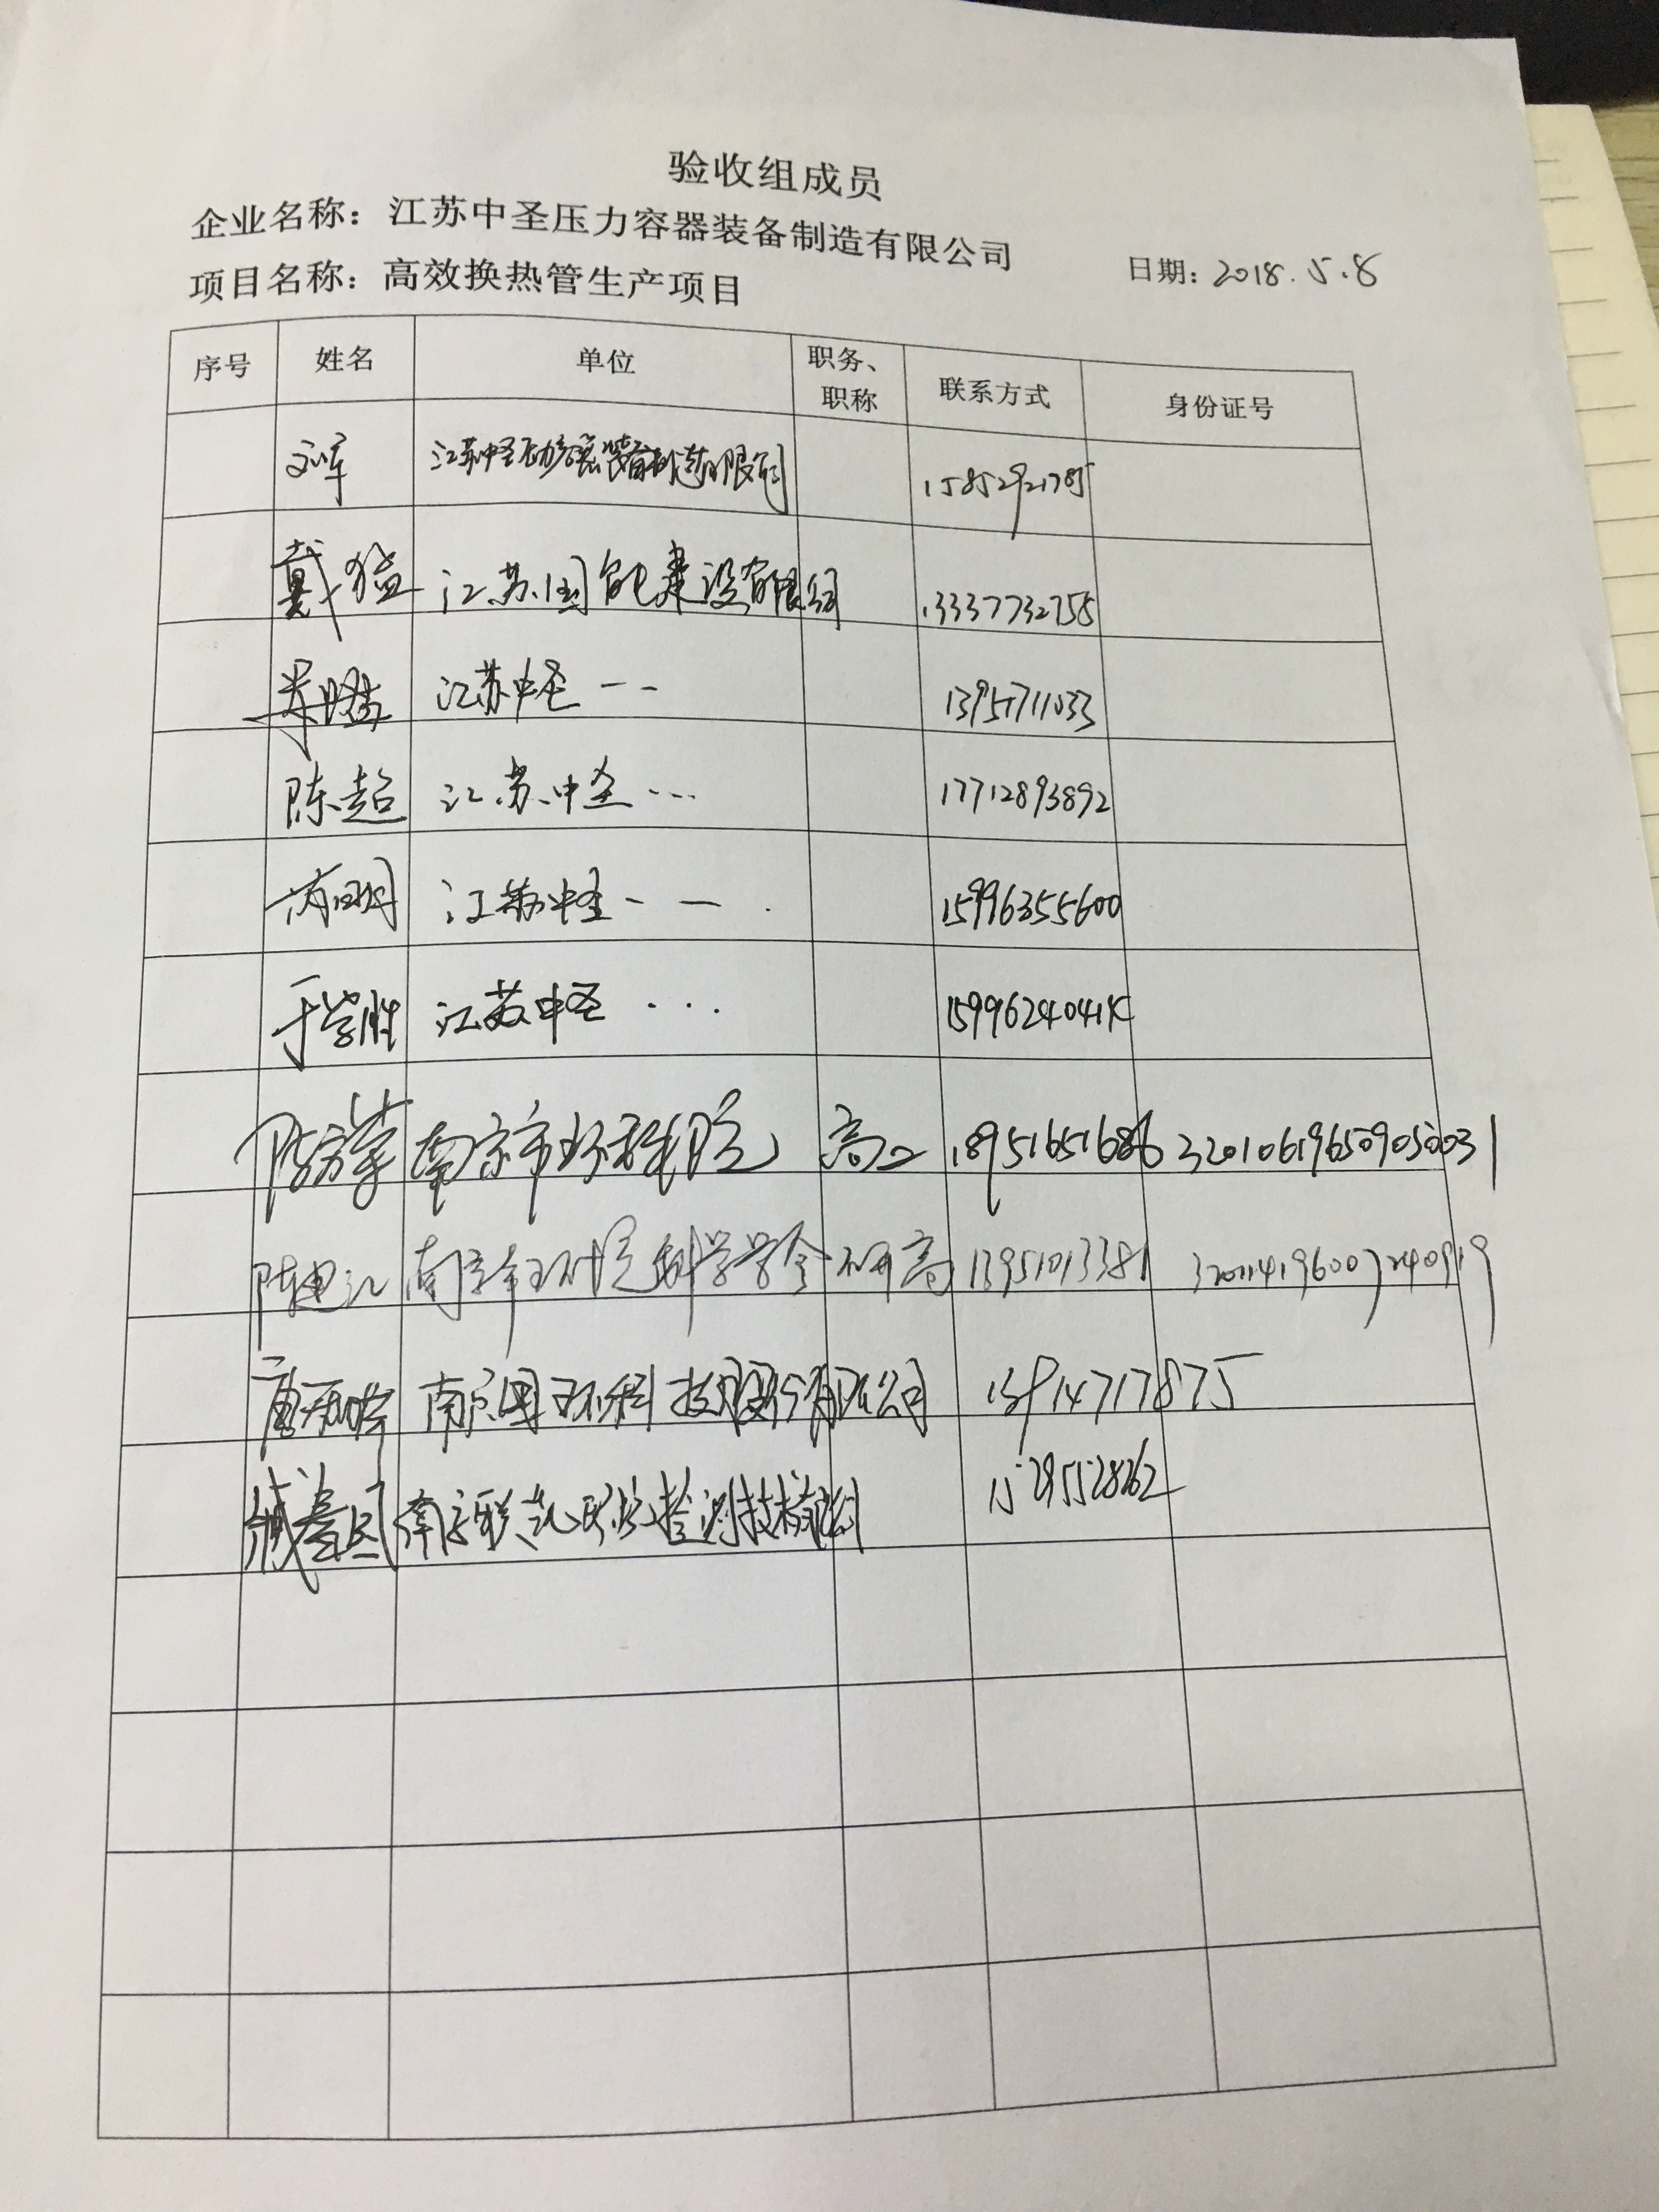 验收组成员
企业名称：江苏中圣压力容器装备制造有限公司
项目名称：高效换热管生产项目
日期：2018.5.8
序号 姓名 单位 职务、职称 联系方式 身份证号
刘军 江苏中圣压力容器装备制造有限公司 15852921785
戴猛 江苏国能建设有限公司 13337732755
江苏中圣 -- 13951711033
陈超 江苏中圣 ... 17712893892
江苏中圣 - — . 15996355600
于学胜 江苏中圣 ...
南京市环科院 高工 18951651686 320106196509050031
陈建江 南京市环境科学学会 研高 13951013381
南京国环科技股份有限公司 13914717875
南京联凯环境检测技术有限公司 15295528262